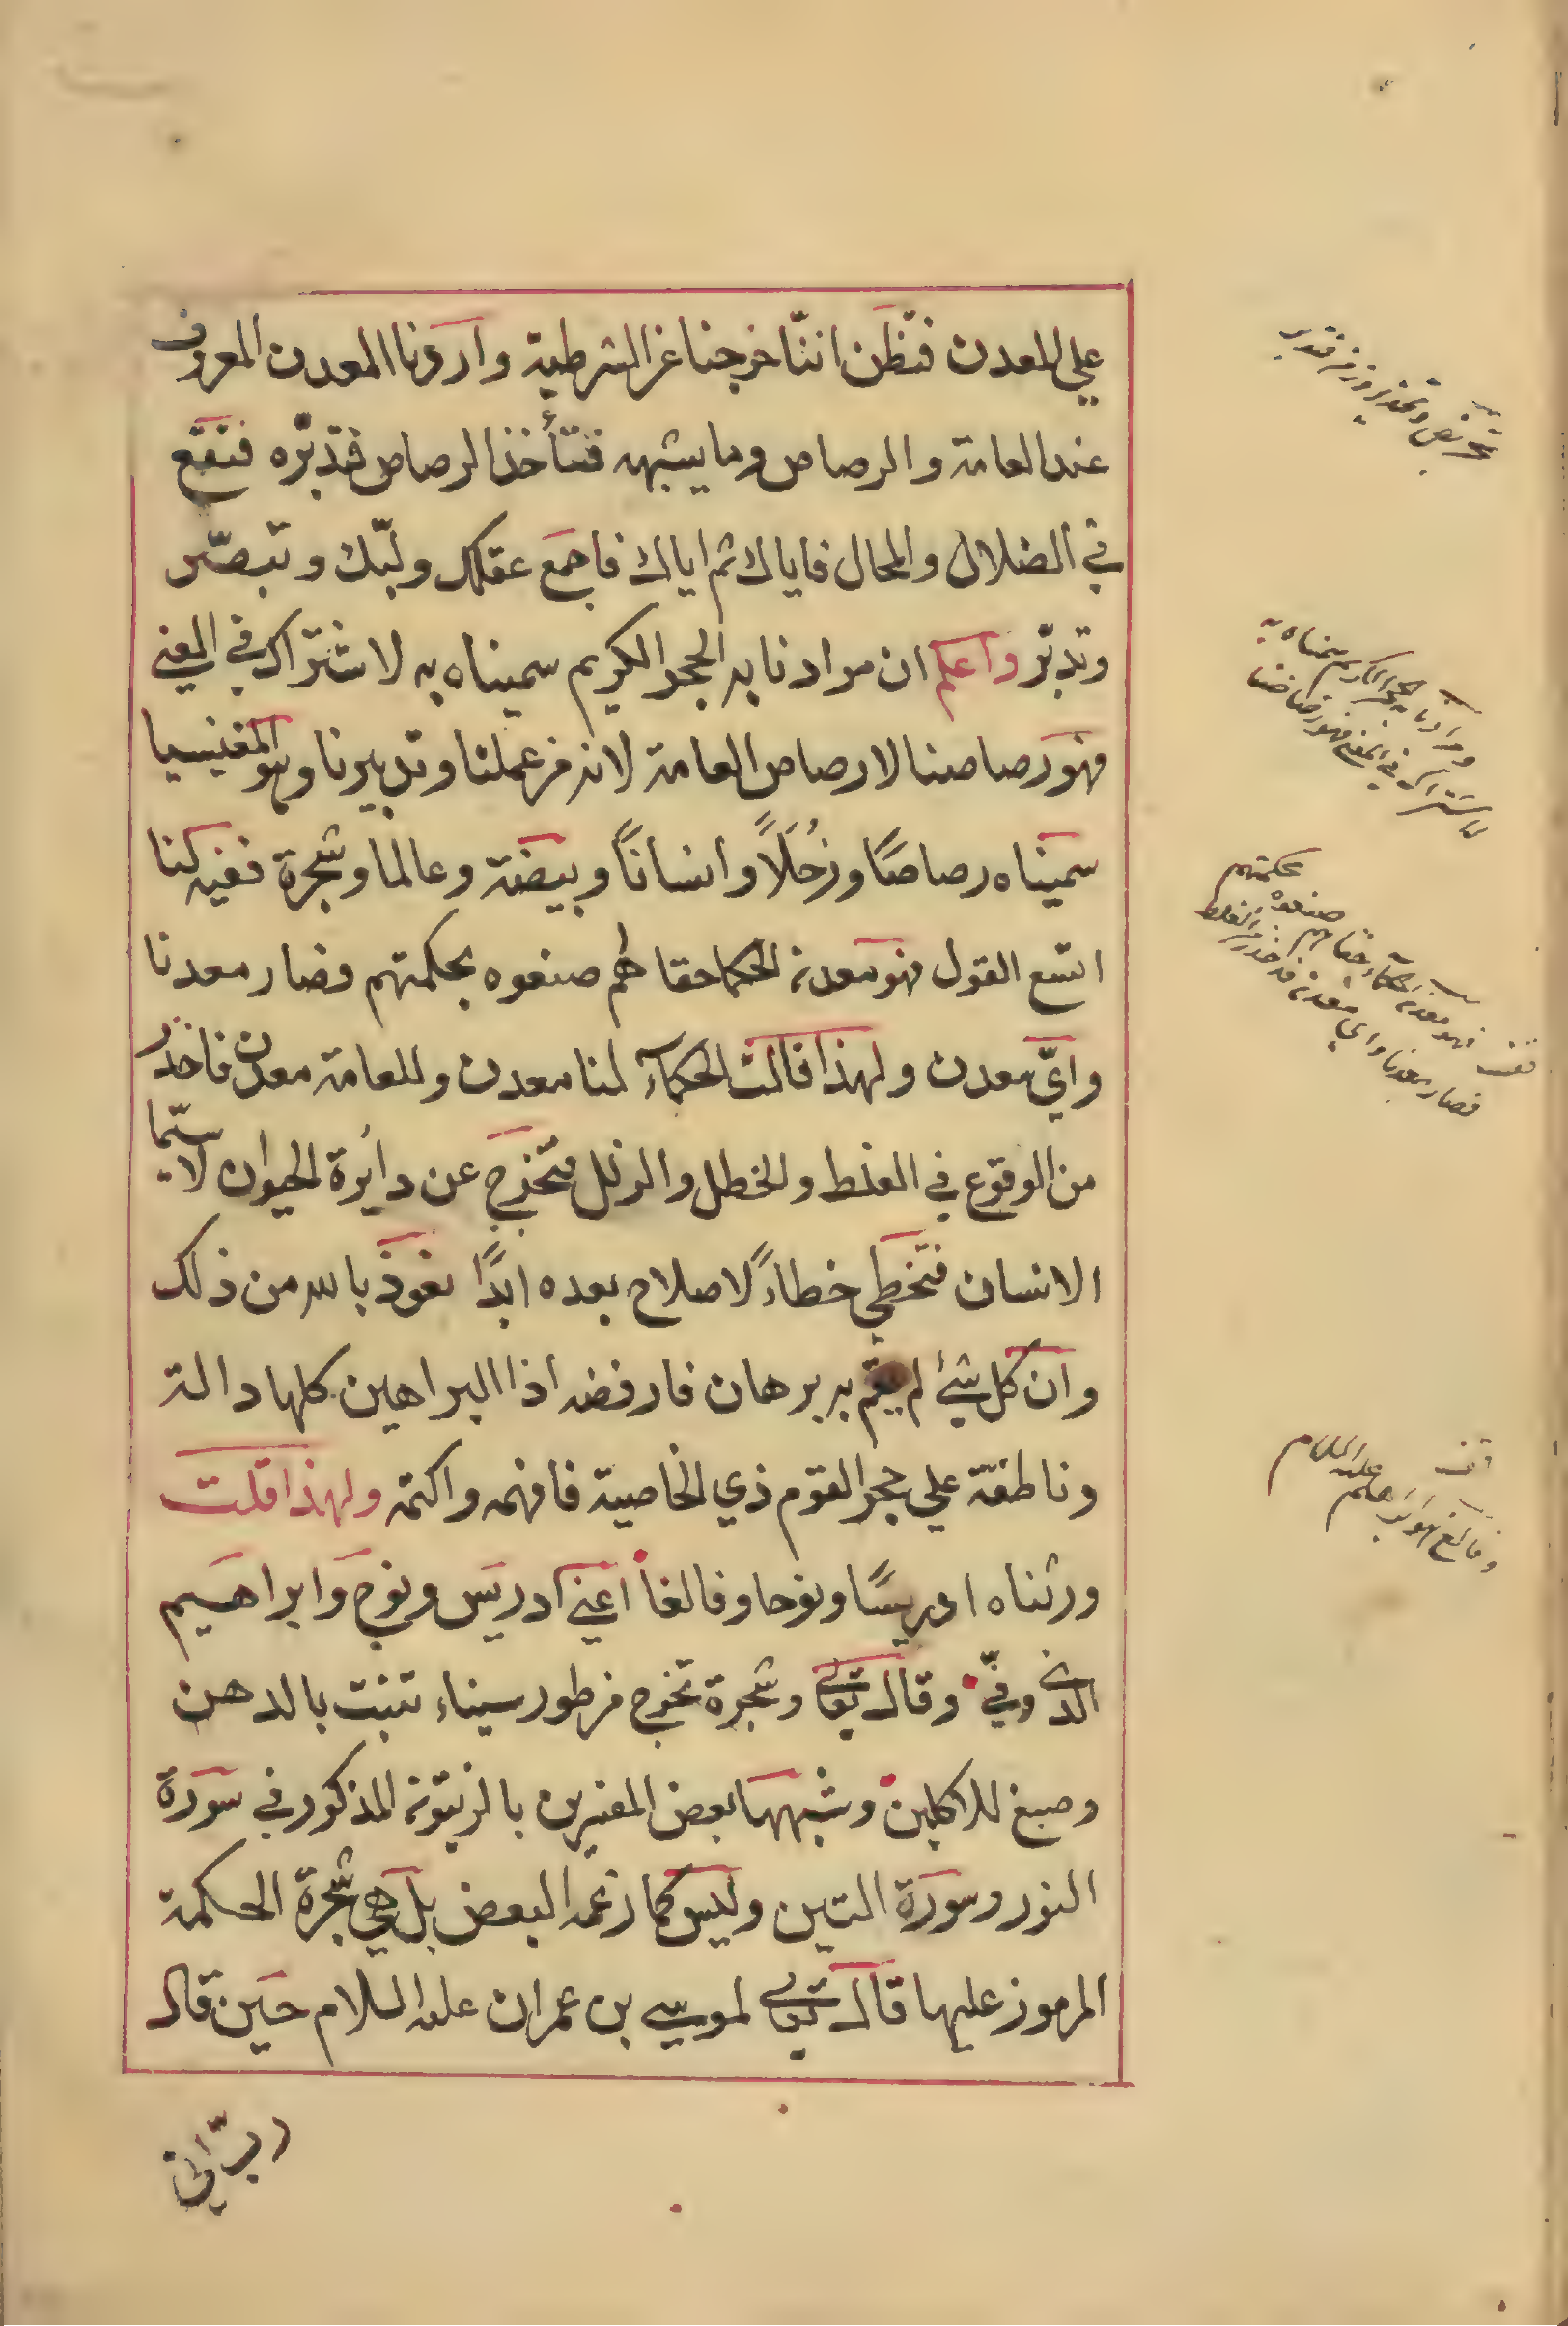 علي المعدن فتظن اننّا خرجنا عن الشرطية واردنا المعدن المعروف
عند العامة والرصاص وما يشبهه فتأخذ الرصاص فتدبّره فتقع
في الضلال والمحال فاياك ثم اياك فاجمع عقلك ولبّك وتبصّر
وتدبّر واعلم ان مرادنا به الحجر الكريم سميناه به لاشتراك في المعني
فهو رصاصنا لا رصاص العامة لانه من عملنا وتدبيرنا وهو المغنيسيا
سميناه رصاصًا وزُحَلًا وانسانًا وبيضة وعالما وشجرة ففيه كنا
اتسع القول فهو معدنه الحكما حقا هم صنعوه بحكمتهم فصار معدنا
وايّ معدن ولهذا قالت الحكمآء لنا معدن وللعامة معدن فاحذر
من الوقوع في الغلط والخطل والزلل فتخرج عن دايرة الحيوان لا سيّما
الانسان فتخطي خطاءً لا صلاح بعده ابدًا نعوذ بالله من ذلك
وان كل شيء لم يقم به برهان فارفضه اذا البراهين كلها دالة
وناطقة علي حجر القوم ذي الخاصية فافهمه واكتمه ولهذا قلت
ورثناه ادريسًا ونوحا وفالغا اعني ادريس ونوح وابراهيم
الذي وفيّ وقال تعالي وشجرة تخرج من طور سيناء تنبت بالدهن
وصبغ للاكلين وشبهها بعض المفسرين بالزيتونة المذكور في سورة
النور وسورة التين وليس كما زعمه البعض بل هي شجرة الحكمة
المرموز عليها قال تعالي لموسي بن عمران عليه السلام حين قال
ربّ اني
ومرادنا به الحجر الكريم سميناه به
لاشتراك في المعني فهو رصاصنا
قف فهو معدنه الحكمآء حقا هم صنعوه بحكمتهم
فصار معدنا واي معدن فاحذر من الغلط
قف
وفالغ هو ابراهيم عليه السلام